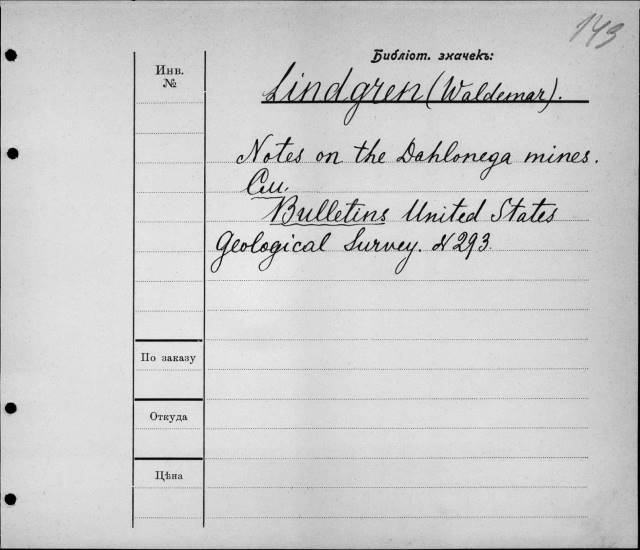 143
Библіот. значекъ:
Инв.
№
Lindgren (Waldemar).
Notes on the Dahlonega mines.
См.
Bulletins United States
Geological Survey. N 293.
По заказу
Откуда
Цѣна